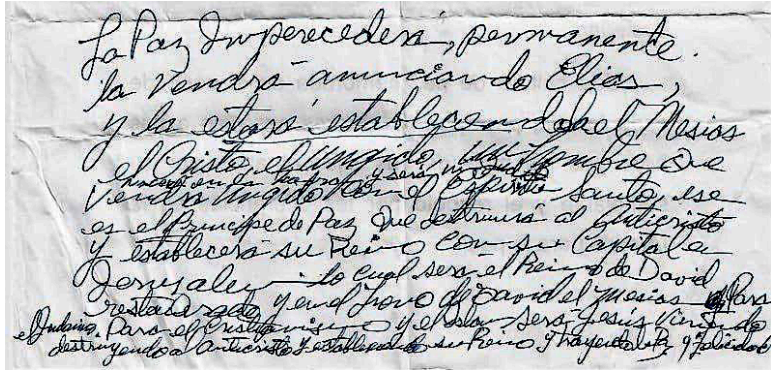 La Paz Imperecedera, permanente.
la vendrá anunciando Elías,
y la estará estableciendola el Mesías
el Cristo, el Ungido, un hombre que
nacerá en la tierra y será
vendrá ungido con el Espíritu Santo, ese
es el Príncipe de Paz que destruirá al anticristo
y establecerá su Reino con su Capital en
Jerusalen lo cual será el Reino de David
restaurado y en el trono de David el Mesías Para
el Judaismo, Para el Cristianismo y el Islam será Jesús Viniendo
destruyendo al anticristo y estableciendo su Reino y trayendo la Paz y felicidad